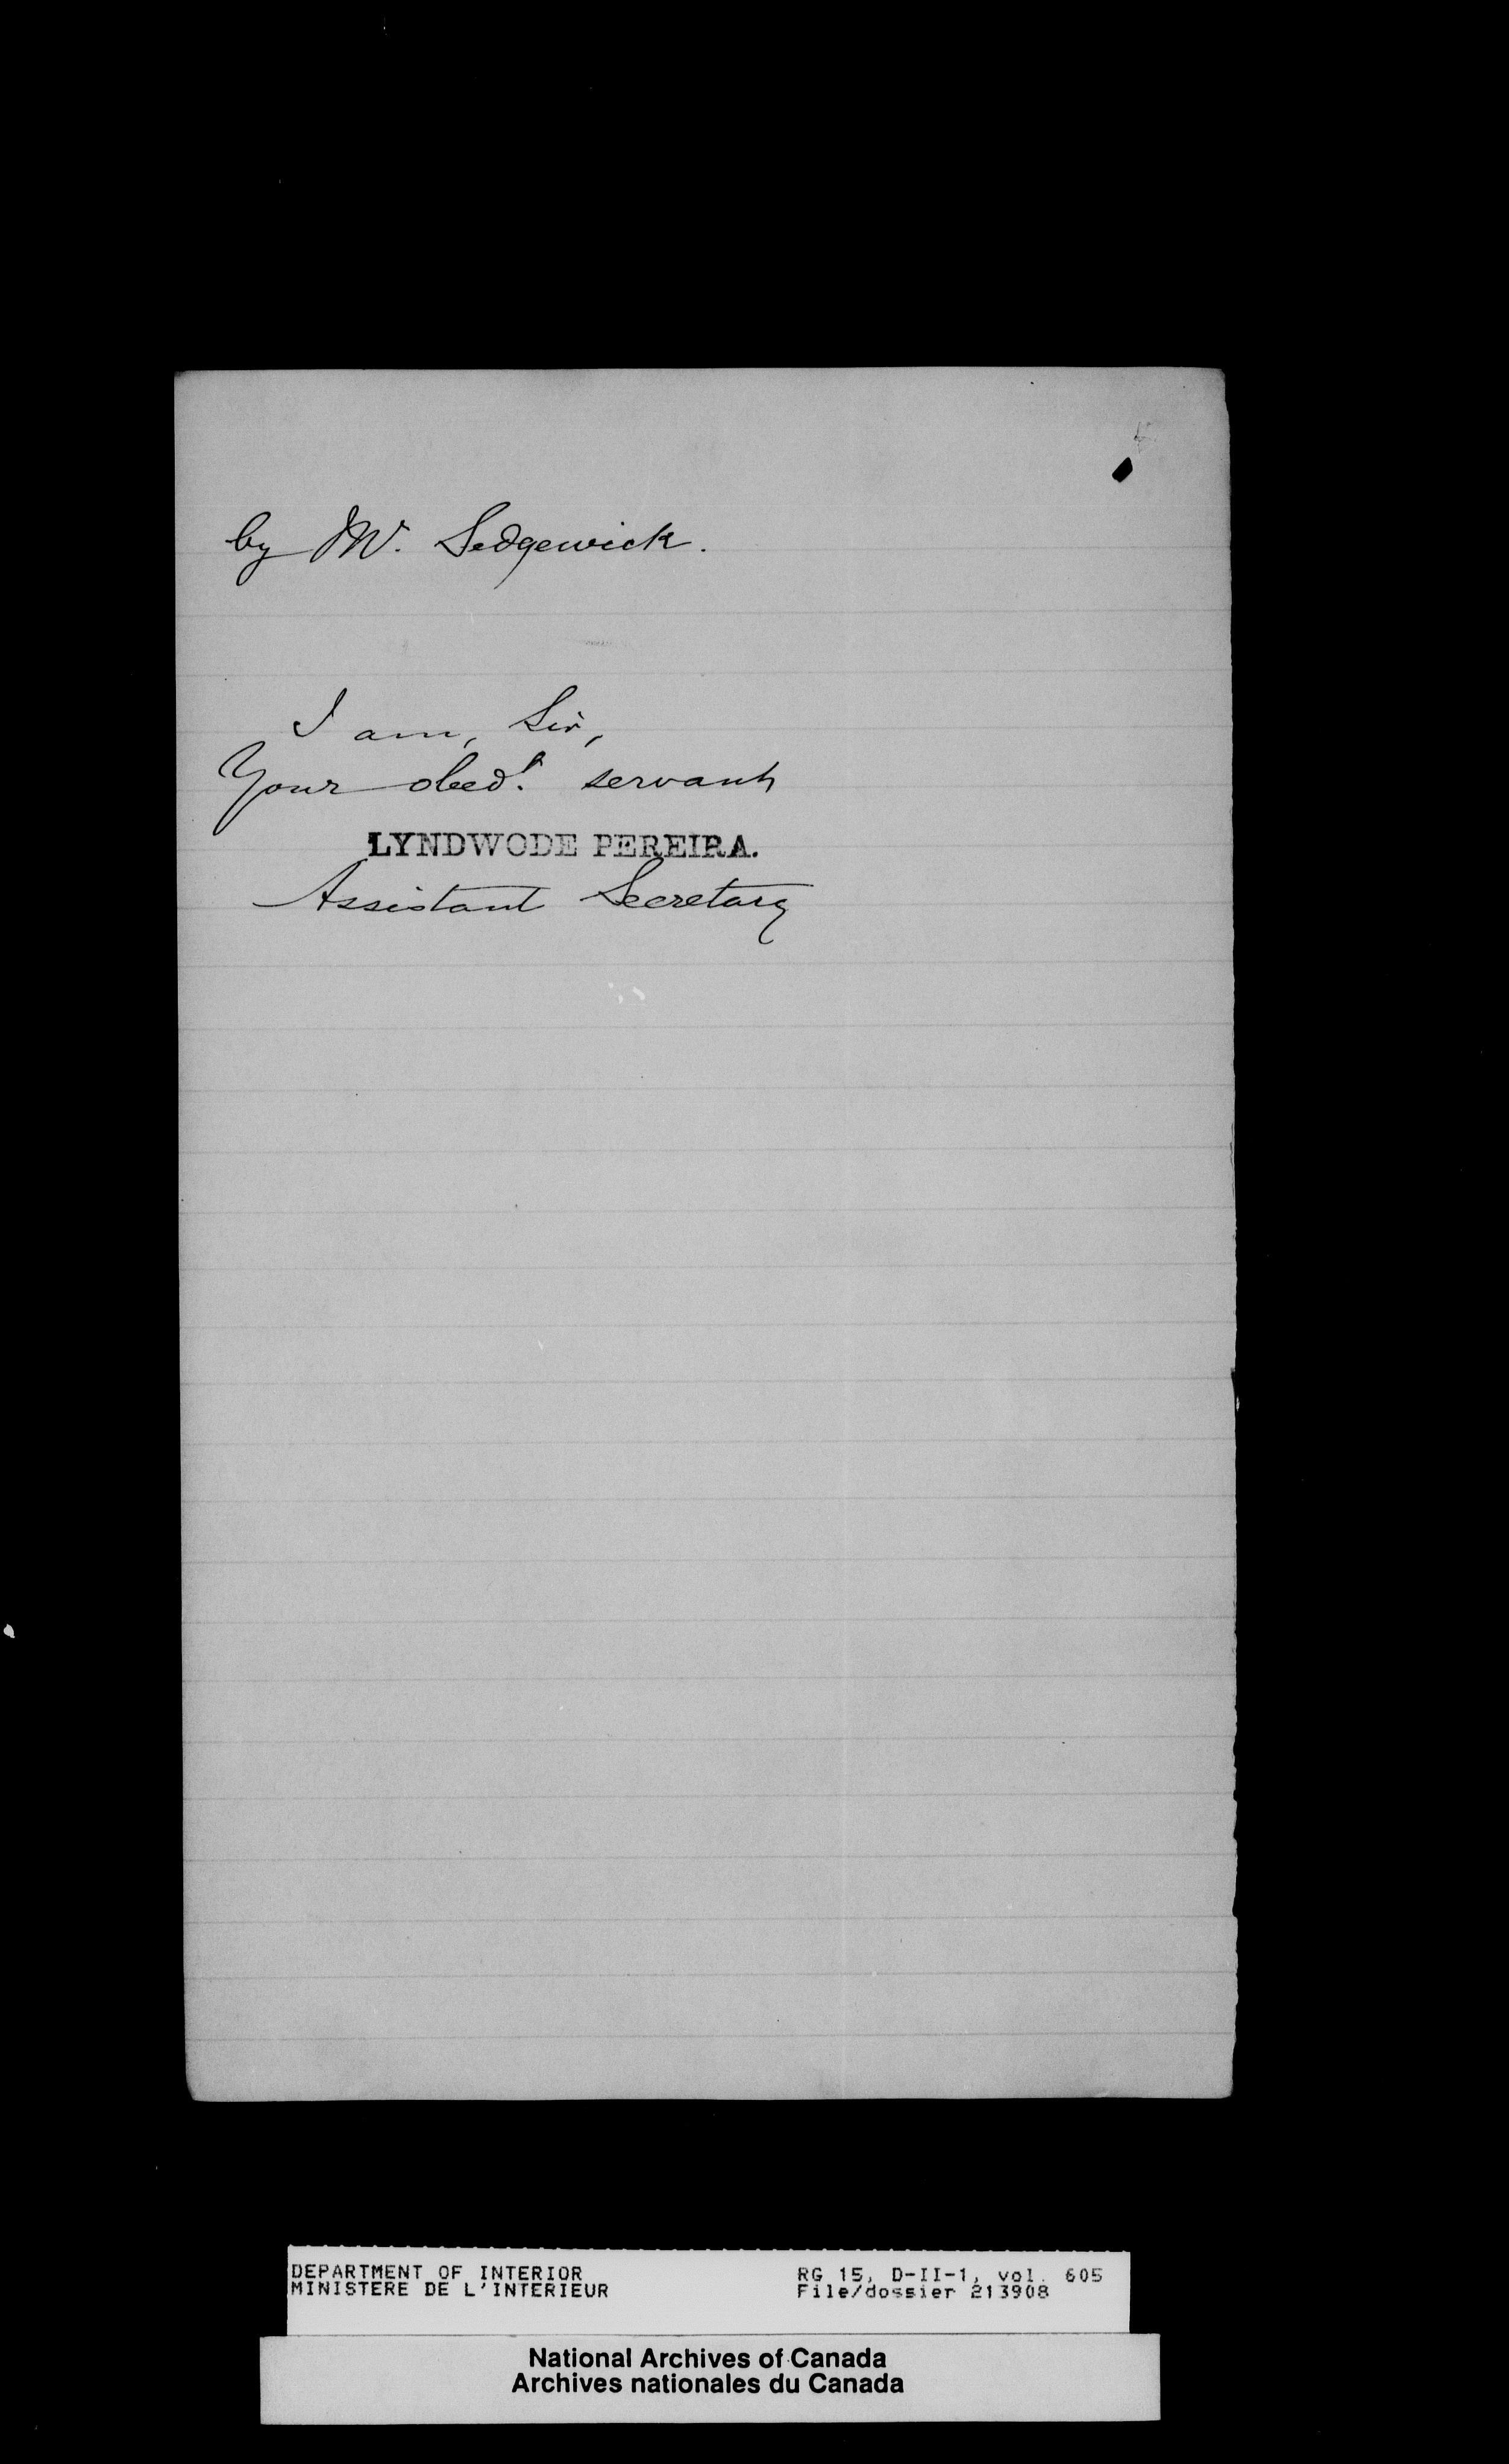 by Mr. Sedgewick.
I am, Sir,
Your obedt. servant
LYNDWODE PEREIRA.
Assistant Secretary
DEPARTMENT OF INTERIOR RG 15, D-II-1, vol. 605
MINISTERE DE L'INTERIEUR File/dossier 213908
National Archives of Canada
Archives nationales du Canada